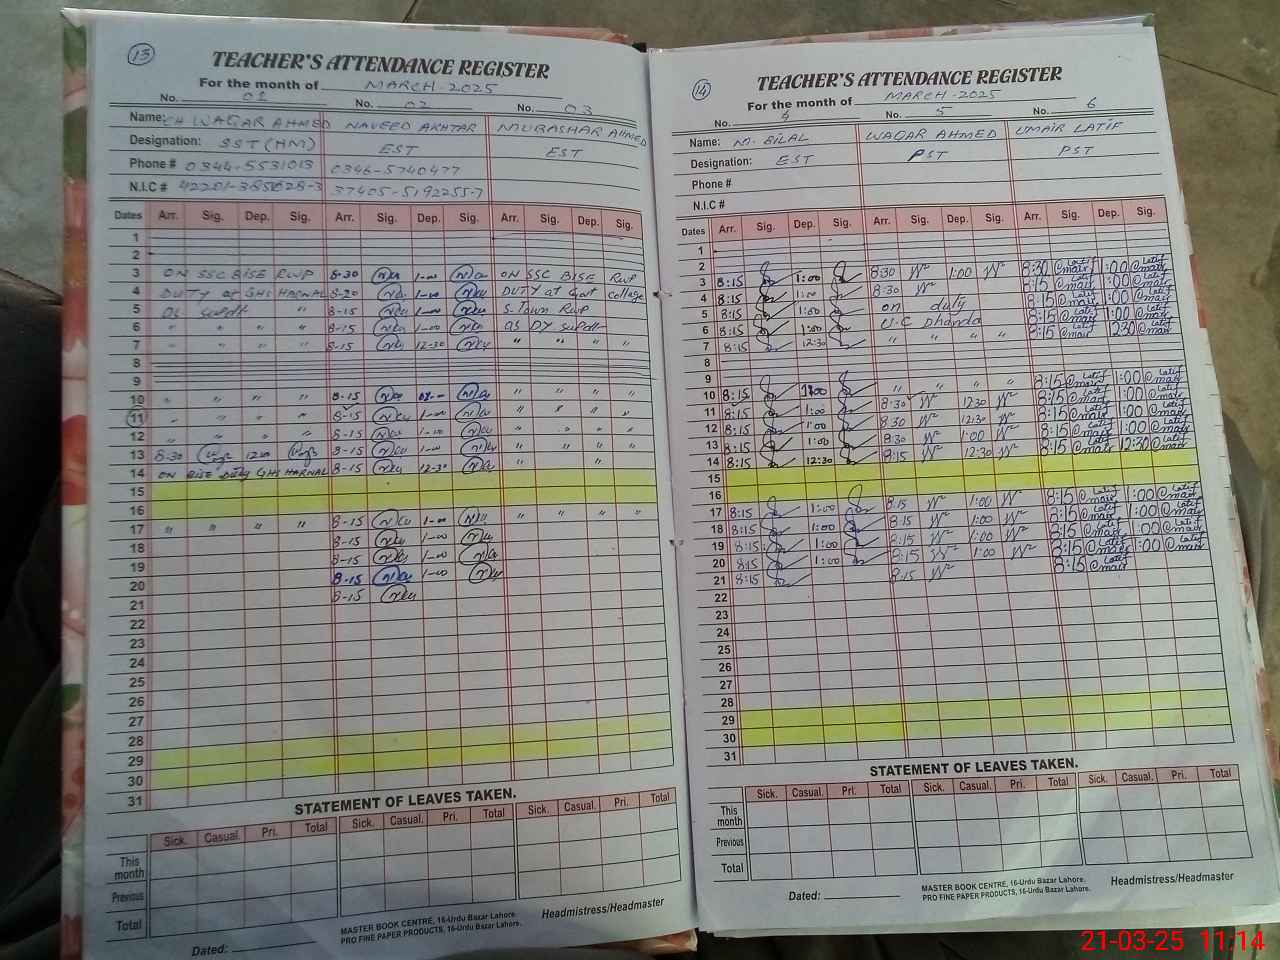 13
TEACHER'S ATTENDANCE REGISTER
For the month of MARCH-2025
No. 01 No. 02 No. 03
Name: CH WAQAR AHMED NAVEED AKHTAR MUBASHAR AHMED
Designation: SST (HM) EST EST
Phone # 0344-5531013 0346-5740477
N.I.C # 37405-5192255-7
Dates Arr. Sig. Dep. Sig. Arr. Sig. Dep. Sig. Arr. Sig. Dep. Sig.
1
2
3 ON SSC BISE RWP 8-30 1-00 ON SSC BISE Rwp
4 DUTY at GHS HARNAL 8-20 1-00 DUTY at Govt college
5 as supdt " 8-15 1-00 S-Town Rwp
6 " " " " 8-15 1-00 as DY supdt
7 " " " " 8-15 12-30 " " " "
8
9
10 " " " " 8-15 " " " "
11 " " " " 8-15 1-00 " " " "
12 " " " " 8-15 1-00 " " " "
13 8-30 8-15 1-00 " " "
14 ON BISE Duty GHS HARNAL 8-15 12-30 " "
15
16
17 " " " " 8-15 1-00 " " " "
18 8-15 1-00
19 8-15 1-00
20 8-15 1-00
21 8-15
22
23
24
25
26
27
28
29
30
31
STATEMENT OF LEAVES TAKEN.
Sick. Casual. Pri. Total Sick. Casual. Pri. Total Sick. Casual. Pri. Total
This month
Previous
Total
MASTER BOOK CENTRE, 16-Urdu Bazar Lahore.
PRO FINE PAPER PRODUCTS, 16-Urdu Bazar Lahore.
Headmistress/Headmaster
Dated:
14
TEACHER'S ATTENDANCE REGISTER
For the month of MARCH-2025
No. 4 No. 5 No. 6
Name: M. BILAL WAQAR AHMED UMAIR LATIF
Designation: EST PST PST
Phone #
N.I.C #
Dates Arr. Sig. Dep. Sig. Arr. Sig. Dep. Sig. Arr. Sig. Dep. Sig.
1
2
3 8:15 1:00 8:30 1:00 8:30 Umair Latif 1:00 Umair Latif
4 8:15 1:00 8:30 8:15 Umair Latif 1:00 Umair Latif
5 8:15 1:00 on duty 8:15 Umair Latif 1:00 Umair Latif
6 8:15 1:00 U.C Dhanda 8:15 Umair Latif 1:00 Umair Latif
7 8:15 12:30 " " " " 8:15 Umair Latif 12:30 Umair Latif
8
9
10 8:15 1:00 " " " " 8:15 Umair Latif 1:00 Umair Latif
11 8:15 1:00 8:30 12:30 8:15 Umair Latif 1:00 Umair Latif
12 8:15 1:00 8:30 12:30 8:15 Umair Latif 1:00 Umair Latif
13 8:15 1:00 8:30 1:00 8:15 Umair Latif 1:00 Umair Latif
14 8:15 12:30 8:15 12:30 8:15 Umair Latif 12:30 Umair Latif
15
16
17 8:15 1:00 8:15 1:00 8:15 Umair Latif 1:00 Umair Latif
18 8:15 1:00 8:15 1:00 8:15 Umair Latif 1:00 Umair Latif
19 8:15 1:00 8:15 1:00 8:15 Umair Latif 1:00 Umair Latif
20 8:15 1:00 8:15 1:00 8:15 Umair Latif 1:00 Umair Latif
21 8:15 8:15 8:15 Umair Latif
22
23
24
25
26
27
28
29
30
31
STATEMENT OF LEAVES TAKEN.
Sick. Casual. Pri. Total Sick. Casual. Pri. Total Sick. Casual. Pri. Total
This month
Previous
Total
Dated:
MASTER BOOK CENTRE, 16-Urdu Bazar Lahore.
PRO FINE PAPER PRODUCTS, 16-Urdu Bazar Lahore.
Headmistress/Headmaster
21-03-25 11:14